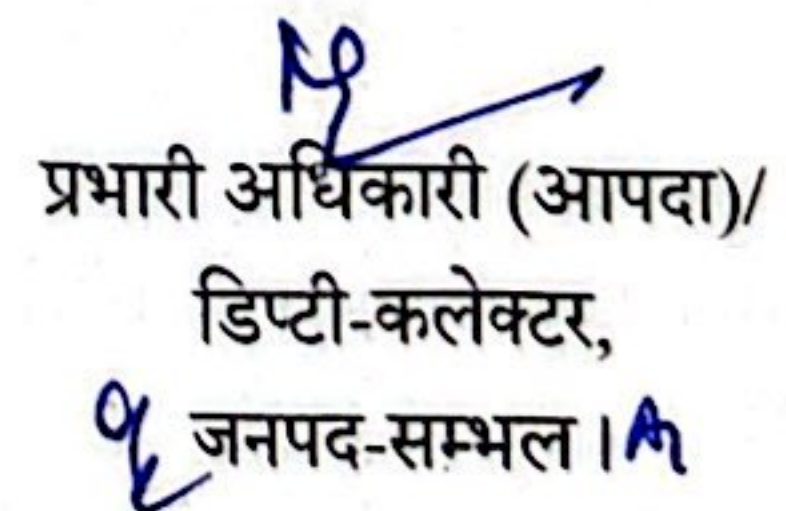 प्रभारी अधिकारी (आपदा)/
डिप्टी-कलेक्टर,
जनपद-सम्भल।